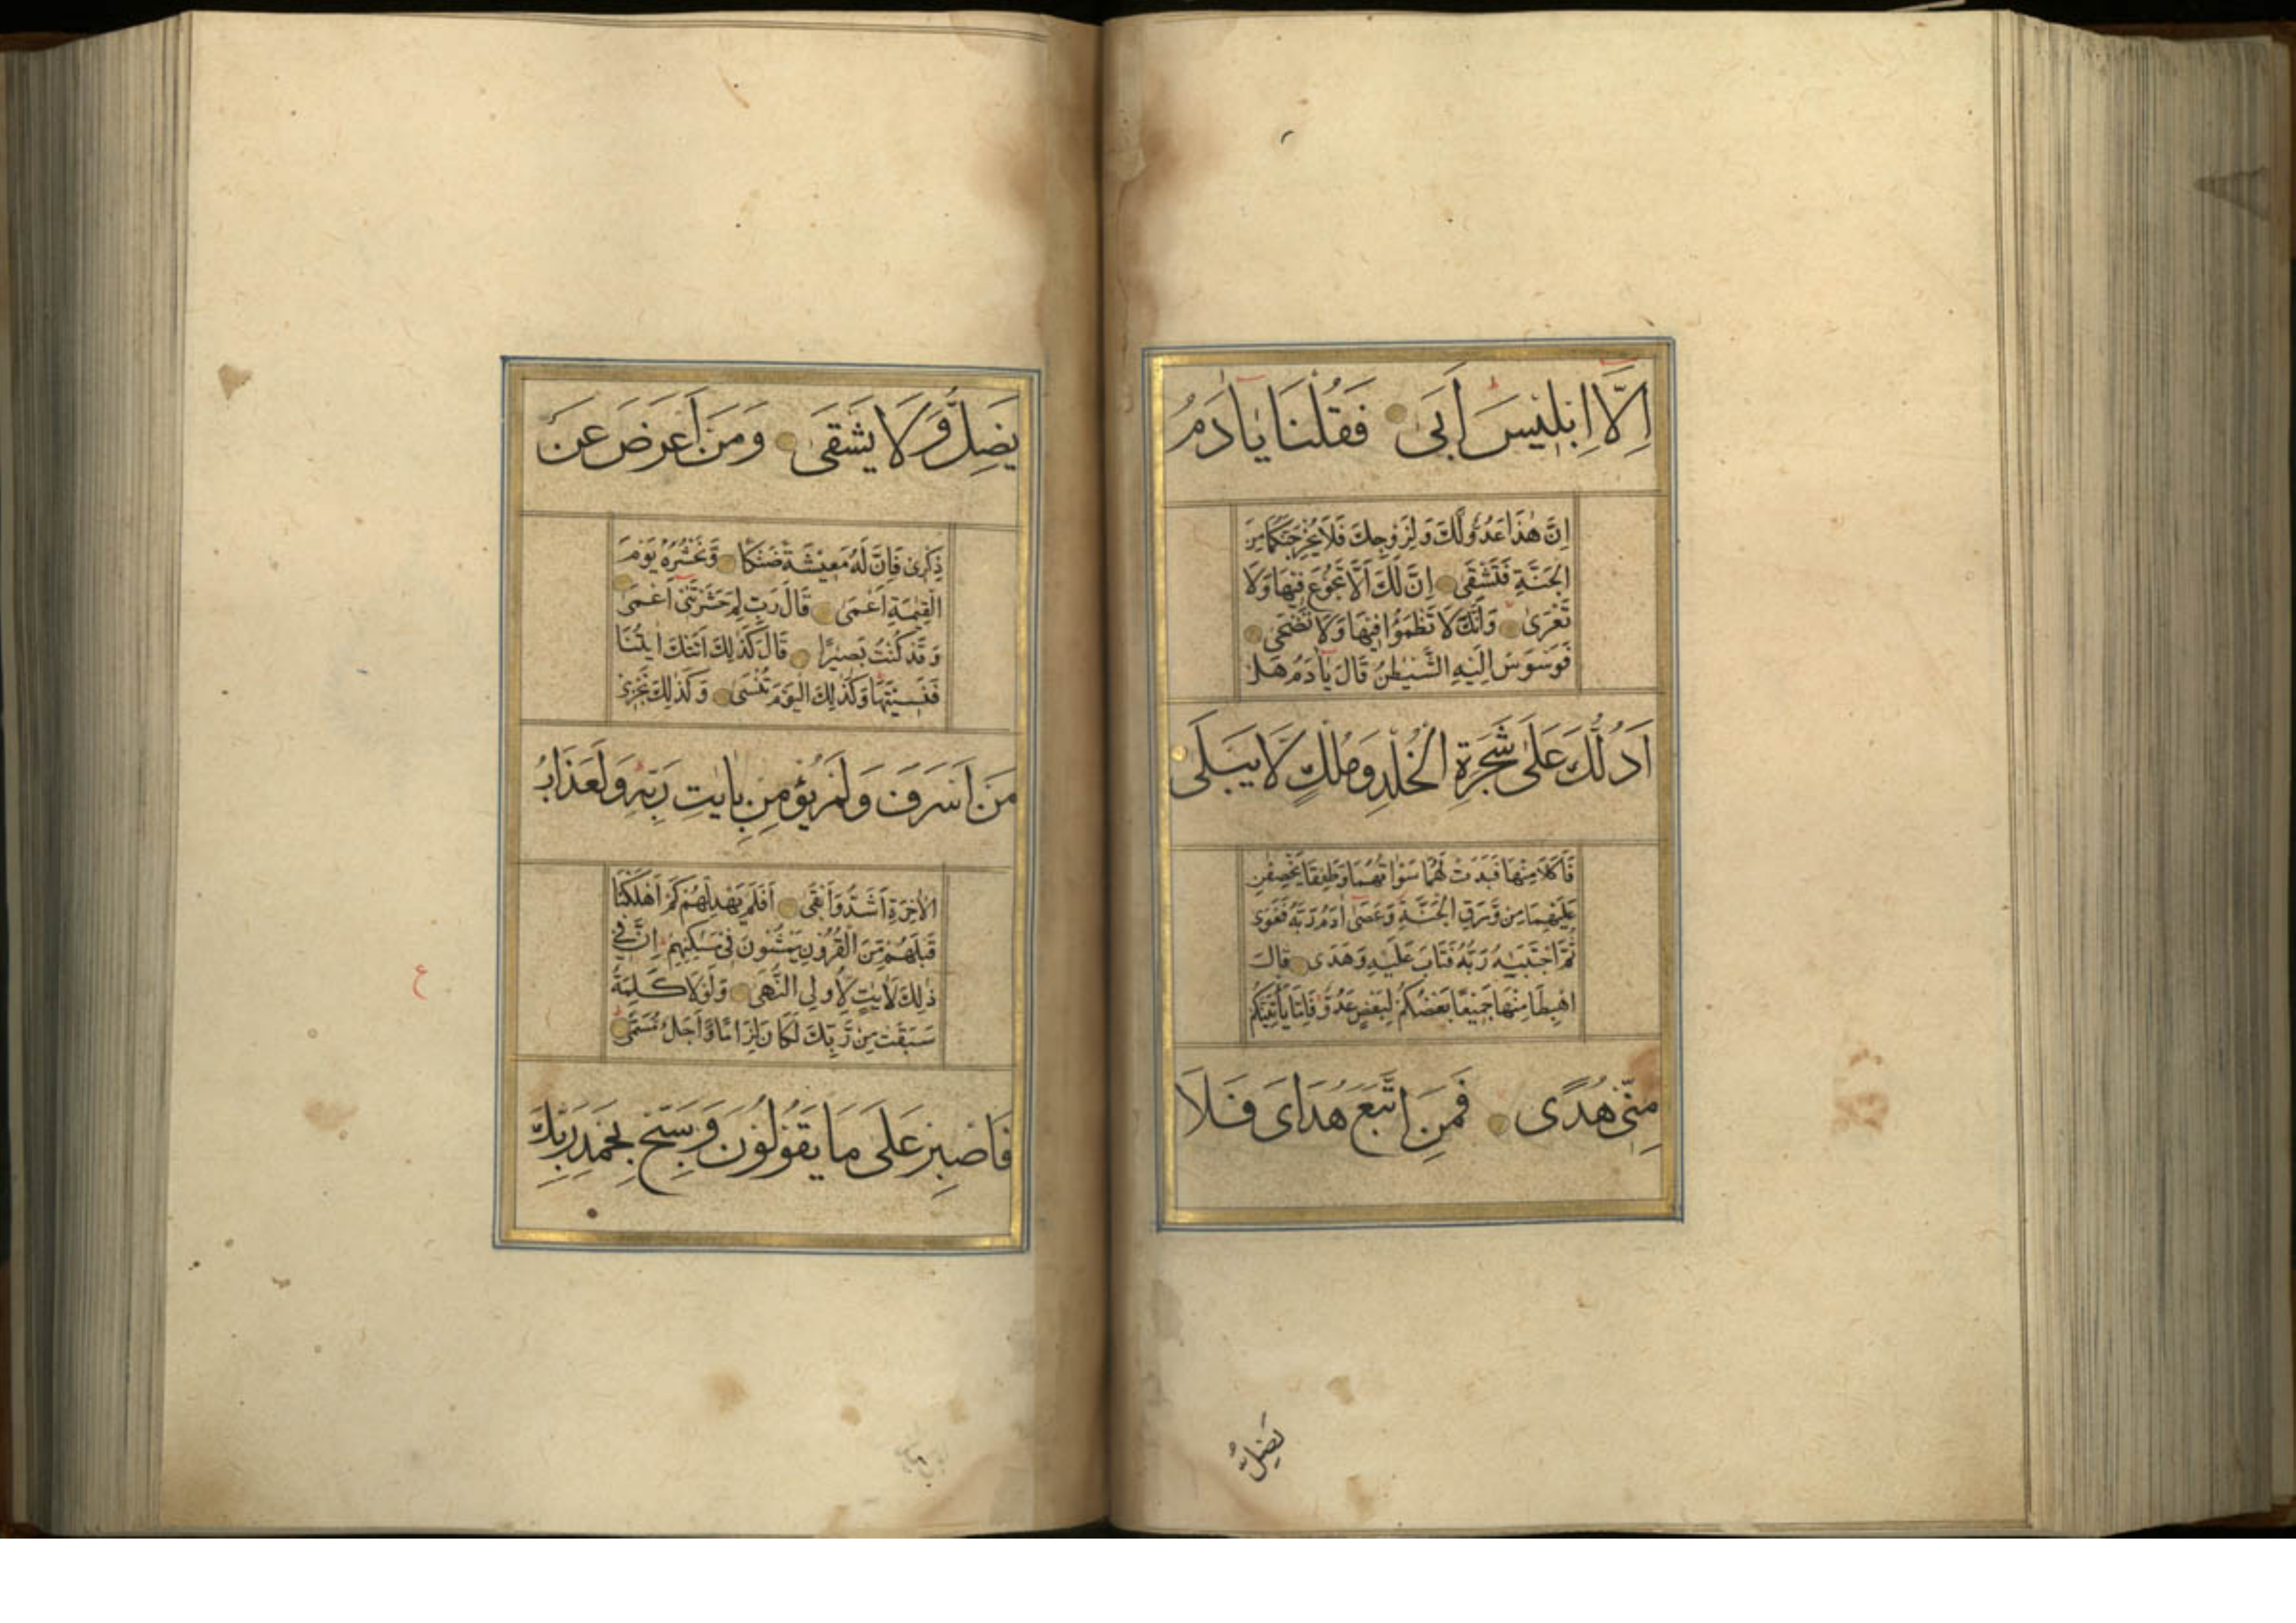 اِلَّا اِبْلِيْسَ اَبَى فَقُلْنَا يَا اٰدَمُ
اِنَّ هٰذَا عَدُوٌّ لَّكَ وَلِزَوْجِكَ فَلَا يُخْرِجَنَّكُمَا مِنَ
الْجَنَّةِ فَتَشْقَى اِنَّ لَكَ اَلَّا تَجُوْعَ فِيْهَا وَلَا
تَعْرَى وَاَنَّكَ لَا تَظْمَؤُا فِيْهَا وَلَا تَضْحَى
فَوَسْوَسَ اِلَيْهِ الشَّيْطٰنُ قَالَ يَا اٰدَمُ هَلْ
اَدُلُّكَ عَلٰى شَجَرَةِ الْخُلْدِ وَمُلْكٍ لَّا يَبْلَى
فَاَكَلَا مِنْهَا فَبَدَتْ لَهُمَا سَوْاٰتُهُمَا وَطَفِقَا يَخْصِفٰنِ
عَلَيْهِمَا مِنْ وَّرَقِ الْجَنَّةِ وَعَصَى اٰدَمُ رَبَّهُ فَغَوَى
ثُمَّ اجْتَبٰيهُ رَبُّهُ فَتَابَ عَلَيْهِ وَهَدَى قَالَ
اهْبِطَا مِنْهَا جَمِيْعًا بَعْضُكُمْ لِبَعْضٍ عَدُوٌّ فَاِمَّا يَأْتِيَنَّكُمْ
مِنِّىْ هُدًى فَمَنِ اتَّبَعَ هُدَاىَ فَلَا
يَضِلُّ
يَضِلُّ وَلَا يَشْقَى وَمَنْ اَعْرَضَ عَنْ
ذِكْرِىْ فَاِنَّ لَهُ مَعِيْشَةً ضَنْكًا وَّنَحْشُرُهُ يَوْمَ
الْقِيٰمَةِ اَعْمَى قَالَ رَبِّ لِمَ حَشَرْتَنِىْ اَعْمَى
وَقَدْ كُنْتُ بَصِيْرًا قَالَ كَذٰلِكَ اَتَتْكَ اٰيٰتُنَا
فَنَسِيْتَهَا وَكَذٰلِكَ الْيَوْمَ تُنْسَى وَكَذٰلِكَ نَجْزِىْ
مَنْ اَسْرَفَ وَلَمْ يُؤْمِنْ بِاٰيٰتِ رَبِّهِ وَلَعَذَابُ
الْاٰخِرَةِ اَشَدُّ وَاَبْقَى اَفَلَمْ يَهْدِ لَهُمْ كَمْ اَهْلَكْنَا
قَبْلَهُمْ مِّنَ الْقُرُوْنِ يَمْشُوْنَ فِىْ مَسٰكِنِهِمْ اِنَّ فِىْ
ذٰلِكَ لَاٰيٰتٍ لِّاُولِى النُّهَى وَلَوْلَا كَلِمَةٌ
سَبَقَتْ مِنْ رَّبِّكَ لَكَانَ لِزَامًا وَّاَجَلٌ مُّسَمًّى
ع
فَاصْبِرْ عَلٰى مَا يَقُوْلُوْنَ وَسَبِّحْ بِحَمْدِ رَبِّكَ